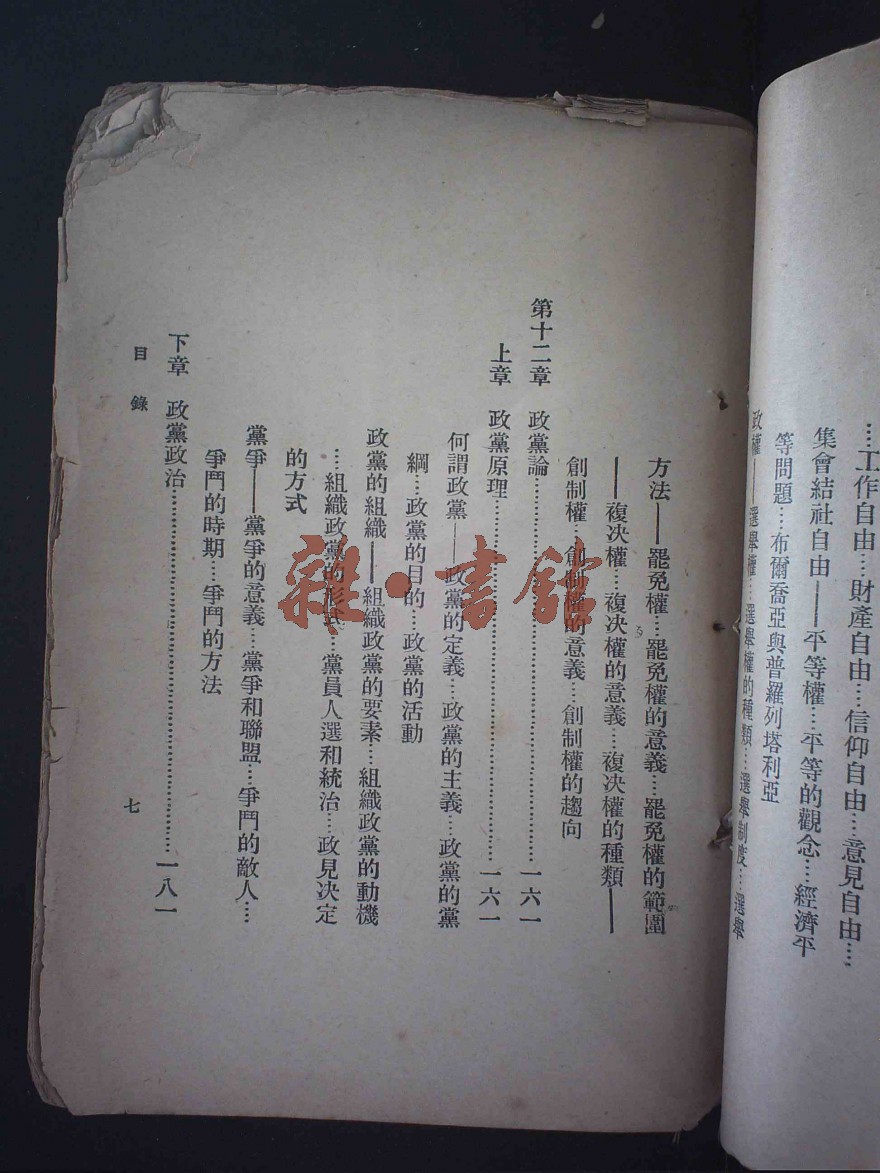 ⋯⋯工作自由⋯⋯財產自由⋯⋯信仰自由⋯⋯意見自由⋯⋯
集會結社自由——平等權⋯⋯平等的觀念⋯⋯經濟平
等問題⋯⋯布爾喬亞與普羅列塔利亞
政權——選舉權⋯⋯選舉權的種類⋯⋯選舉制度⋯⋯選舉
方法——罷免權⋯⋯罷免權的意義⋯⋯罷免權的範圍
——複决權⋯⋯複决權的意義⋯⋯複决權的種類——
創制權⋯⋯創制權的意義⋯⋯創制權的趨向
第十二章 政黨論⋯⋯⋯⋯⋯⋯⋯⋯⋯⋯一六一
上章 政黨原理⋯⋯⋯⋯⋯⋯⋯⋯⋯⋯一六一
何謂政黨——政黨的定義⋯⋯政黨的主義⋯⋯政黨的黨
綱⋯⋯政黨的目的⋯⋯政黨的活動
政黨的組織——組織政黨的要素⋯⋯組織政黨的動機
⋯⋯組織政黨的形式⋯⋯黨員人選和統治⋯⋯政見决定
的方式
黨爭——黨爭的意義⋯⋯黨爭和聯盟⋯⋯爭鬥的敵人⋯⋯
爭鬥的時期⋯⋯爭鬥的方法
下章 政黨政治⋯⋯⋯⋯⋯⋯⋯⋯⋯⋯一八一
目錄
七
雜·書館